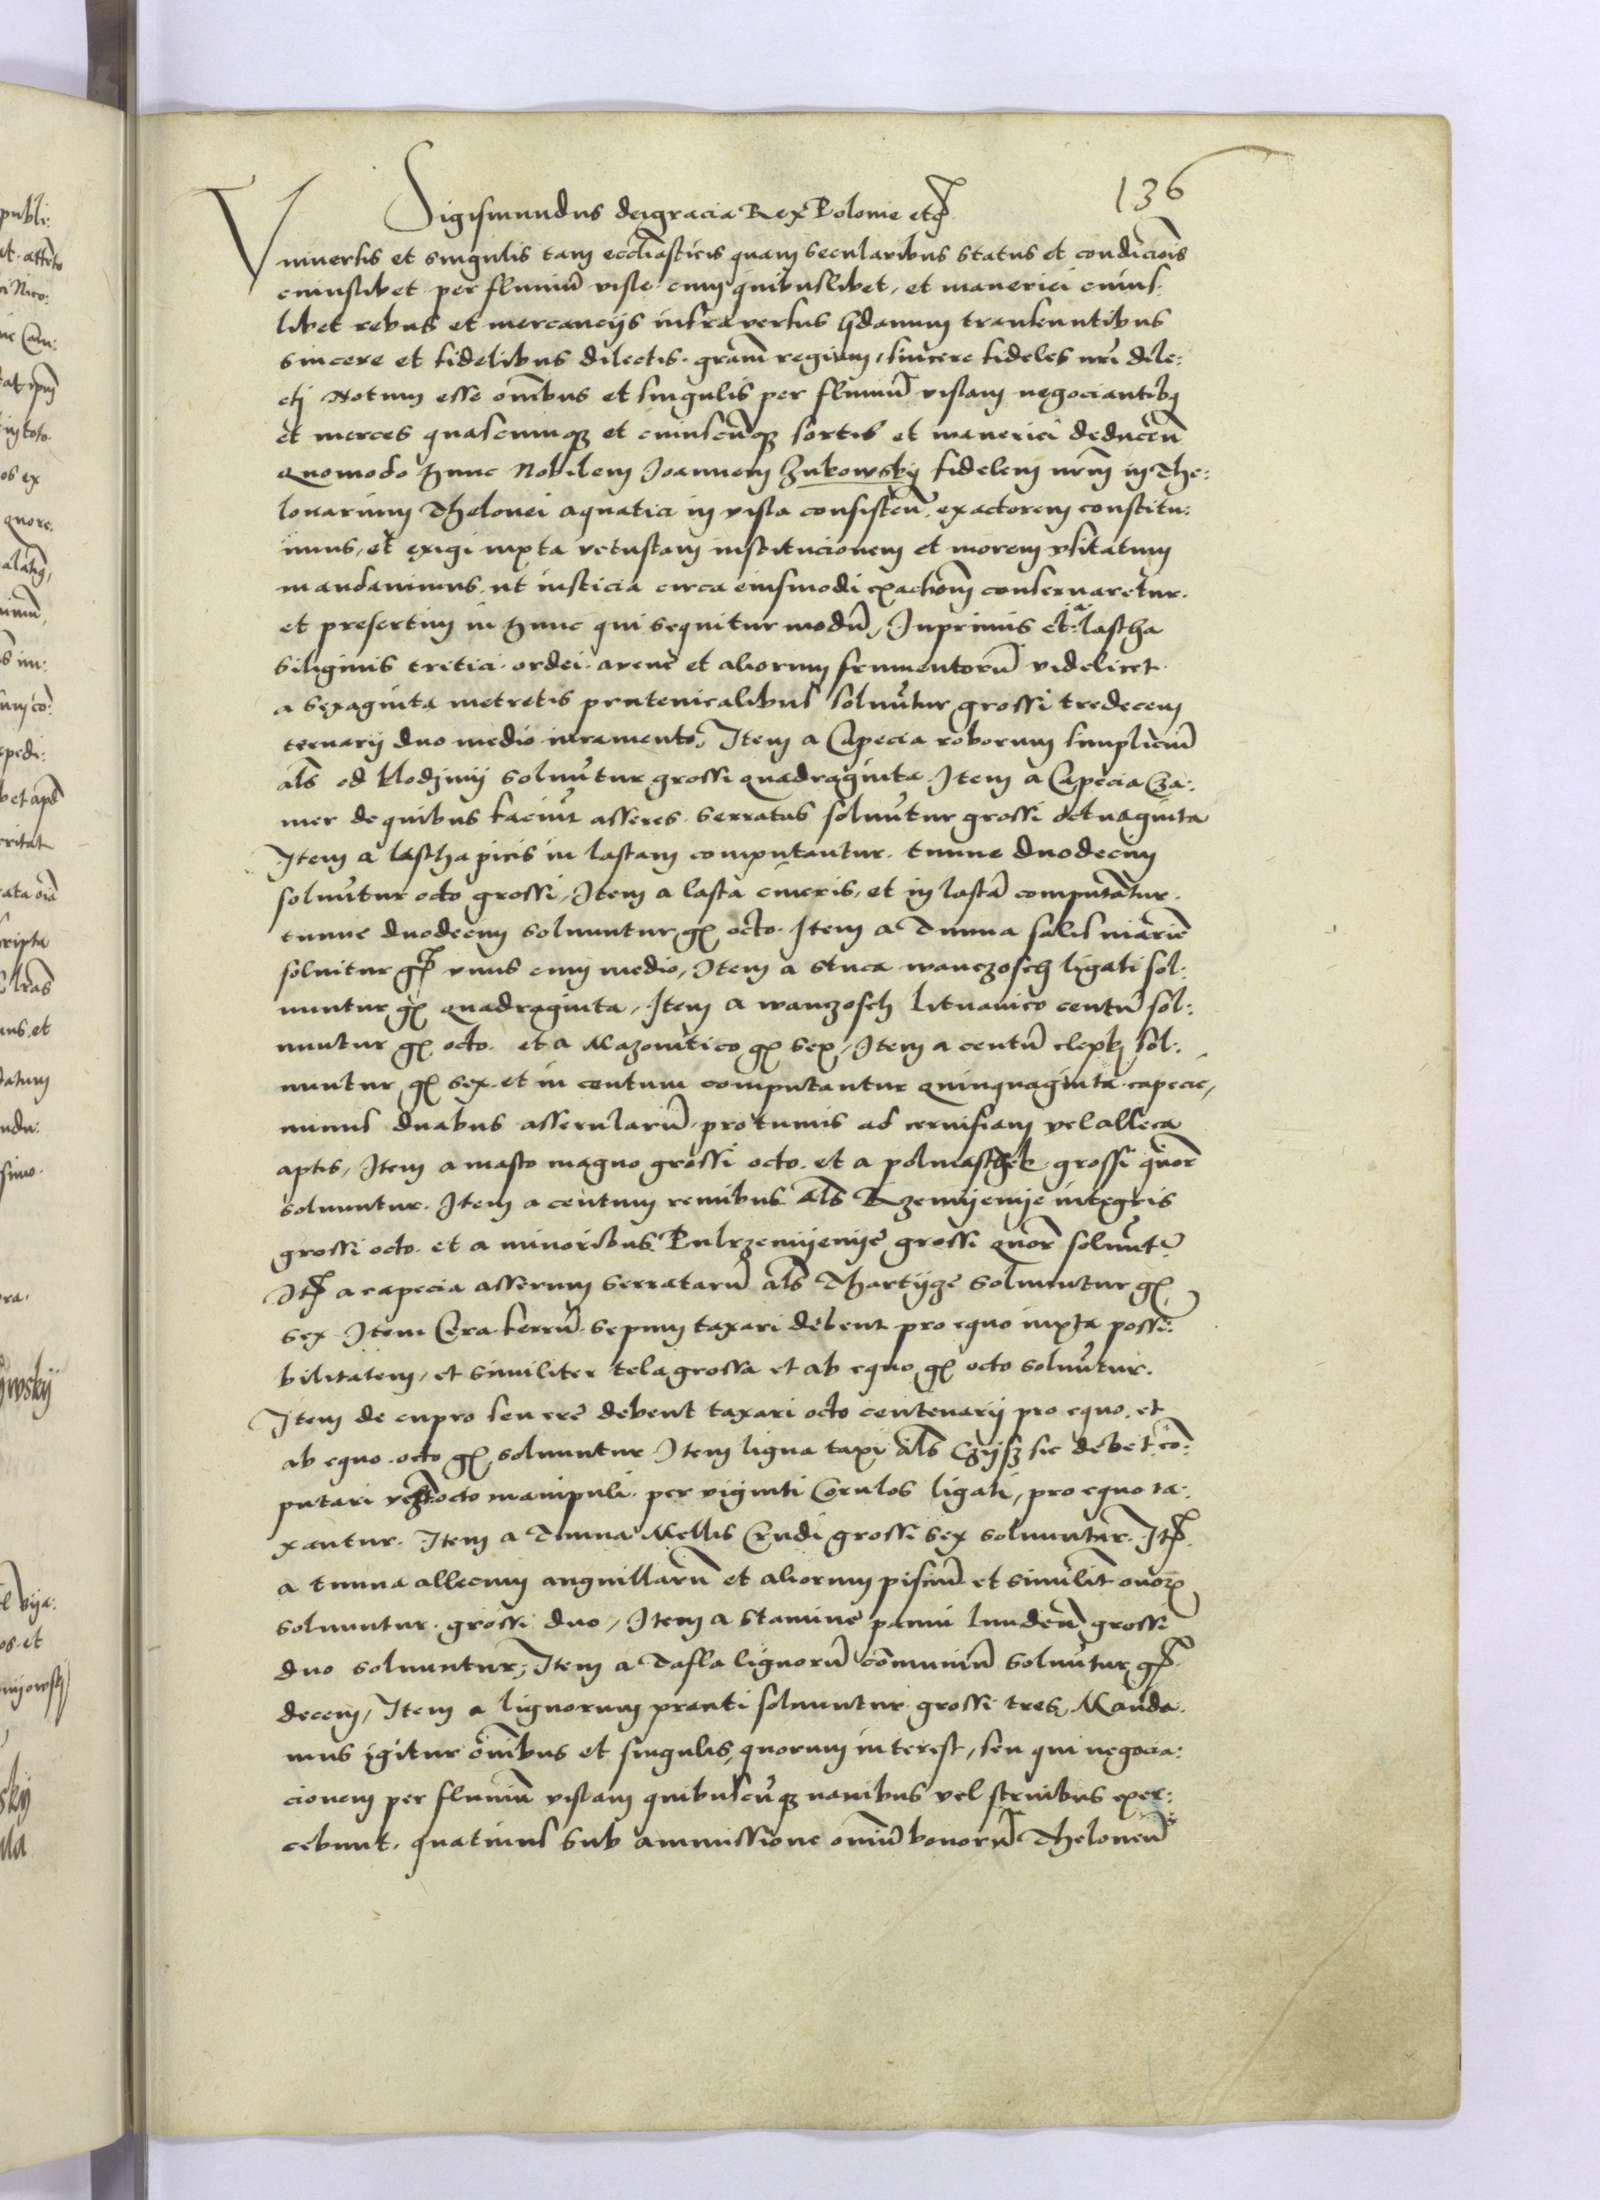 136
Sigismundus dei gracia Rex Polonie etc̃
Vniuersis et singulis tam eccliasticis quam secularibus status et condiciõis
cuiuslibet per fluuiũ visle cum quibuslibet, et maneriei cuius
libet rebus et mercancijs infra versus gdanum transeuntibus
sincere et fidelibus dilectis. grãm regiam, sincere fideles nrĩ dile:
ctj Notum esse oñibus et singulis per fluuiũ vistam negociantibq
et merces quascumqz et cuiuscũqz sortis et maneriei deducẽn
Quomodo hunc Nobilem Joannem Zukowskij fidelem nrm̃ in The:
lonarium Thelonei aquatici in visla consisteñ. exactorem constitu:
imus, et exigi iuxta vetustam institucionem et morem vsitatum
mandauimus, ut iusticia circa eiusmodi exactiom̃ conseruaretur.
et presertim in hunc qui sequitur modũ, Inprimis et a lascha
siliginis tritici. ordei. auene et aliorum frumentorũ videlicet.
a sexaginta metretis prutenicalibus soluũtur grossi tredecem
ternarij duo medio iuramento, Item a Capecia roborum simpliciũ
als̃ od klodzinij soluũtur grossi quadraginta. Item a Capecia Cza:
mer de quibus faciũt asseres serratas soluũtur grossi octuaginta
Item a lascha picis in lastam computantur. tunne duodecim
soluũtur octo grossi, Item a lasta cineris, et in lastã computãtur.
tunne duodecim soluuntur gẜ octo. Item a Tunna salis mariñ
soluitur gẜ vnus cum medio, Item a stuca wanczosch ligati sol:
uuntur gẜ quadraginta, Item a wanczosch Lituanico centũ sol:
uuntur gẜ octo. et a Mazouitico gẜ sex, Item a centũ clepkj sol:
uuntur gẜ sex. et in centum computantur quinquaginta capecie,
minus duabus asserularũ. pro tunnis ad ceruisiam vel alleca
aptis, Item a masto magno grossi octo. et a polmaschek grossi quõr
soluuntur. Item a centum remibus als̃ Rzemijenije integris
grossi octo. et a minoribus Pulrzemijenije grossi quõr soluũtr̃.
Itẜ a capecia asserum serratarũ als̃ Thartijge soluuntur gẜ
sex. Item Cera ferrũ. sepum taxari debent pro equo iuxta possi:
bilitatem, et similiter tela grossa et ab equo gẜ octo soluũtur.
Item de cupro seu ere debent taxari octo centenarij pro equo. et
ab equo. octo gẜ soluuntur Item ligna taxi als̃ Czijsz sic debet cõ:
putari octo manipuli. per viginti Corulos ligati, pro equo ta:
xantur. Item a Tunna Mellis Crudi grossi sex soluuntur. Itẜ
a tunna allecum anguillarũ et aliorum pisciũ et similit̃ ouorꝝ
soluuntur. grossi duo, Item a stamine panni lundeñ grossi
duo soluuntur, Item a Tafla lignorũ communiũ soluũtur gẜ
decem, Item a lignorum pranti soluuntur grossi tres, Manda.
mus igitur oñibus et singulis, quorum interest, seu qui negocia:
cionem per fluuiũ vistam quibuscũqz nauibus vel struibus exer:
cebunt. quatinus sub ammissione oniũ bonorũ Theloneũ